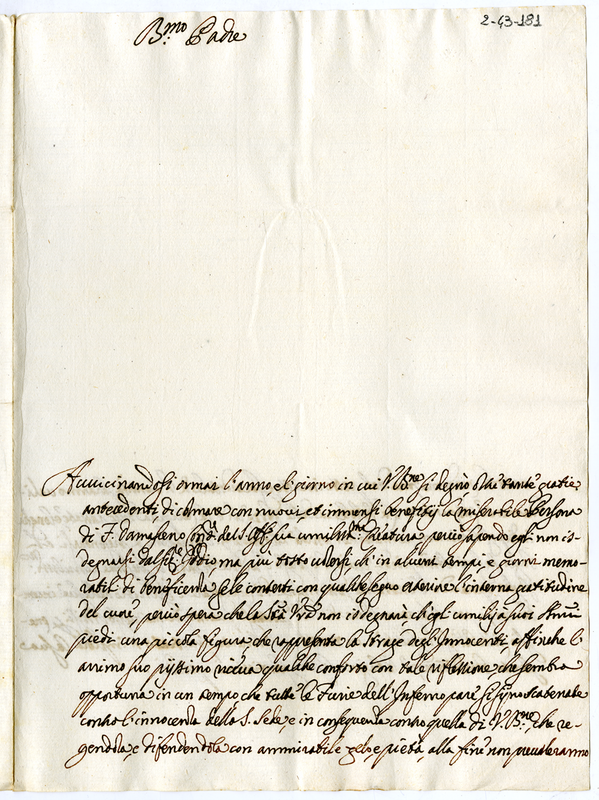 B.mo Padre
2-43-181
Avvicinandosi ormai l'anno, e'l giorno in cui V. B.ne si degnò oltre tante gratie
antecedenti di colmare con nuovi, et immensi beneficij la miserabile Persona
di F. Damasceno dell' sua umilis.ma creatura perciò sapendo egli non is-
degnarsi Iddio ma più tosto volersi ch' in alcuni tempi e giorni memo-
rabili di beneficenza se le contesti con qualche segno esteriore l'interna gratitudine
del cuore, perciò spera che la S.tà V.ra non isdegnarà ch'egli umilij a suoi S.mi
piedi una piccola figura, che rappresenta la Strage degl'Innocenti affinche l'
animo suo pijssimo riceva qualche conforto con tale riflessione che sembra
opportuna in un tempo che tutte le Furie dell'Inferno pare si sijno scatenate
contro l'innocenza della S. Sede, e in conseguenza contro quella di V. B.ne, che re-
gendola, e difendendola con ammirabile zelo, e pietà, alla fine non prevaleranno